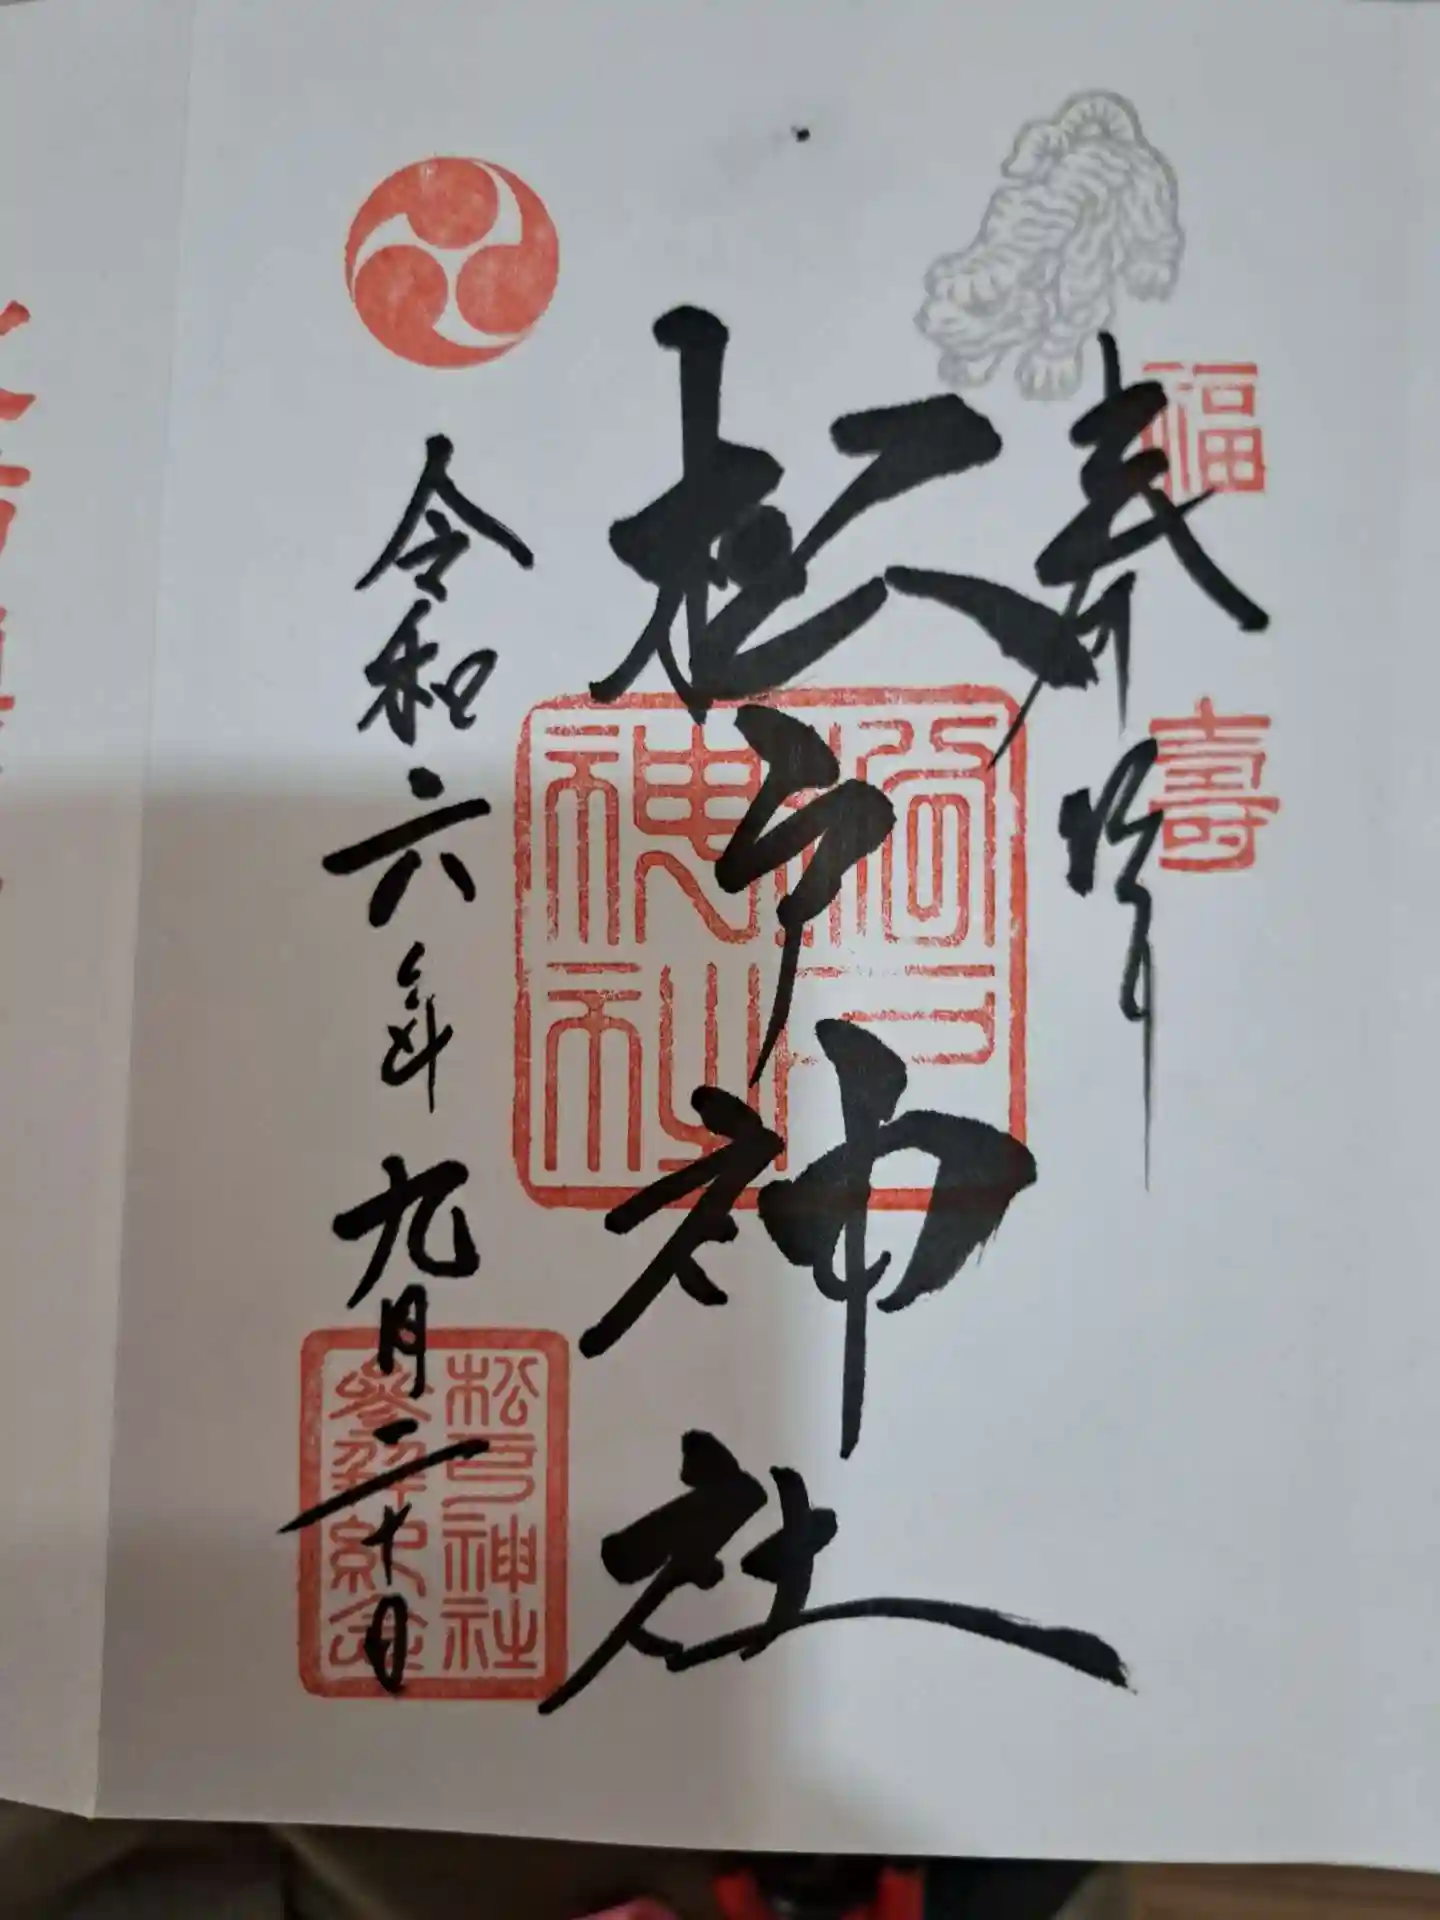 奉拝
福
壽
松戸神社
松戸神社
令和六年九月二十日
松戸神社
参拝紀念